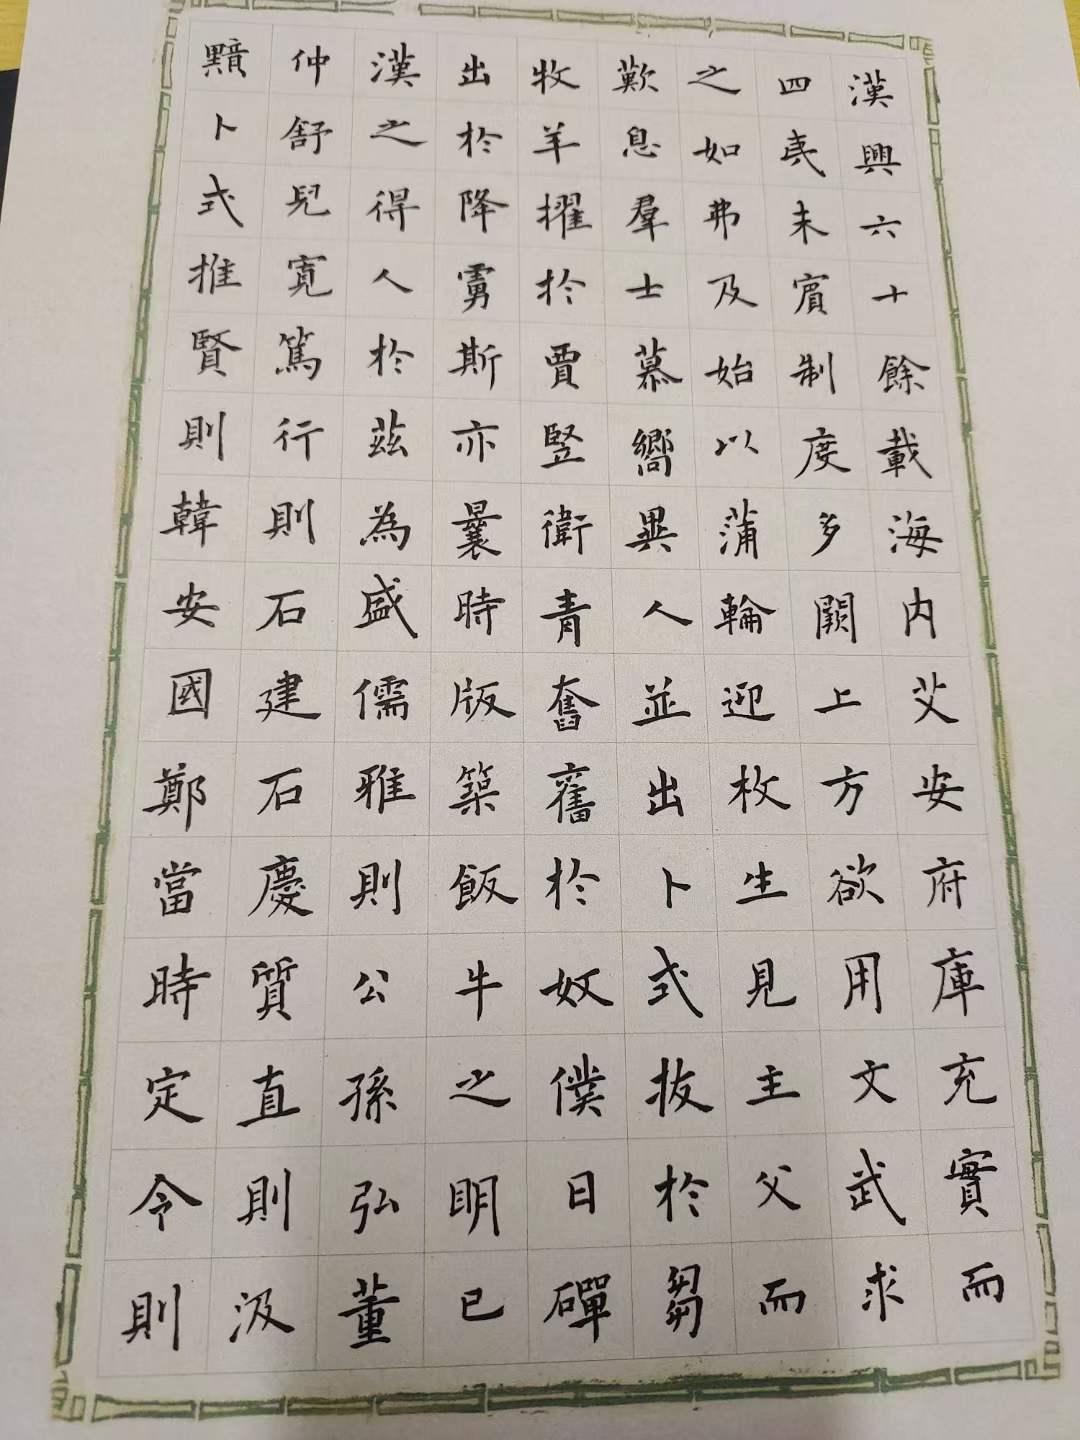 漢興六十餘載海内艾安府庫充實而
四夷未賓制度多闕上方欲用文武求
之如弗及始以蒲輪迎枚生見主父而
歎息羣士慕嚮異人並出卜式拔於芻
牧羊擢於賈竪衛青奮舊於奴僕日磾
出於降虜斯亦曩時版築飯牛之明已
漢之得人於茲為盛儒雅則公孫弘董
仲舒兒寬篤行則石建石慶質直則汲
黯卜式推賢則韓安國鄭當時定令則